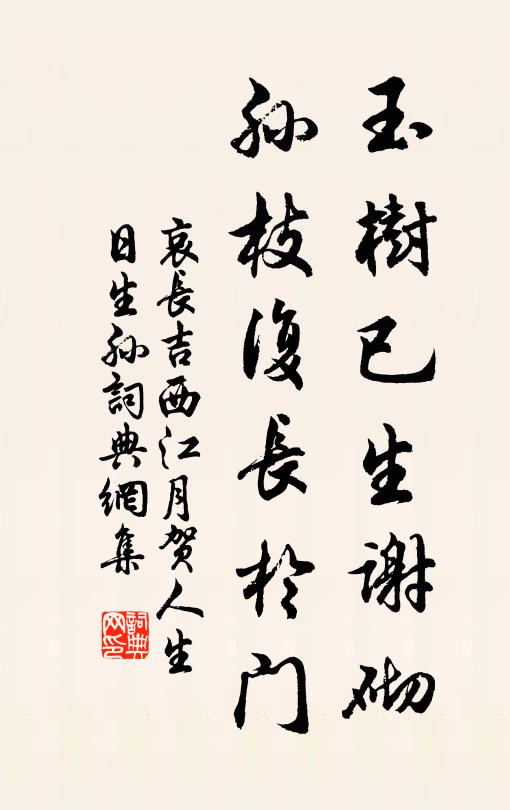 玉樹已生謝砌
孙枝復長於門
哀長吉西江月贺人生
日生孙詞典網集
詞典
网印